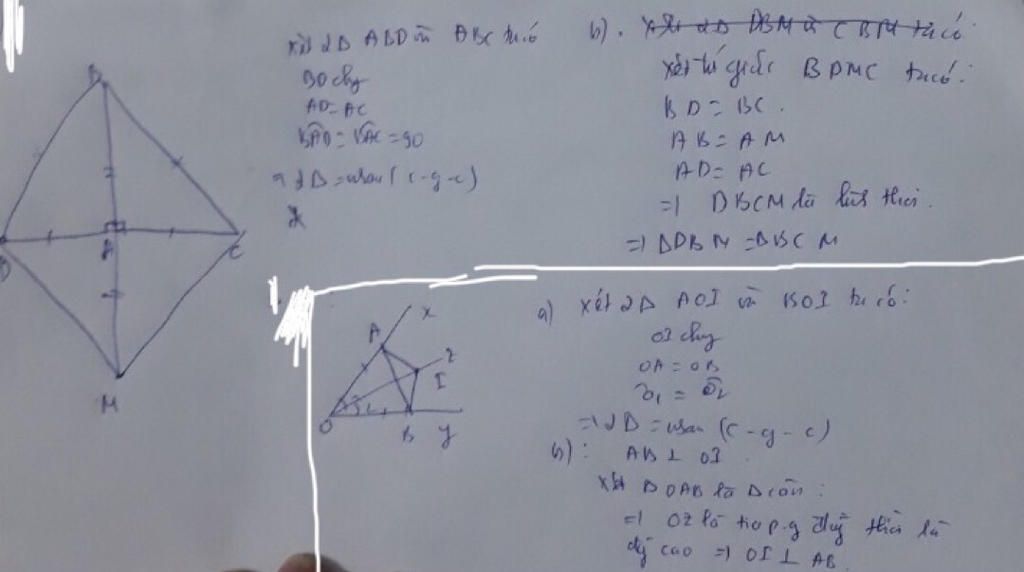 B
D
A
C
M
Xét 2Δ ABD và ABC ta có
BD chg
AD = AC
BAD = BAC = 90
=> 2Δ = nhau (c-g-c)
b). Xét 2Δ DBM và CBM ta có
Xét tứ giác BDMC ta có:
BD = BC.
AB = AM
AD = AC
=> DBCM là hình thoi.
=> ΔDBM = ΔBCM
x
A
z
I
O
B
y
a) Xét 2Δ AOI và BOI ta có:
OI chg
OA = OB
O1 = O2
=> 2Δ = nhau (c-g-c)
b): AB ⊥ OI.
Xét Δ OAB là Δ cân:
=> OZ là tia p.g đồng thời là
đg cao => OI ⊥ AB.